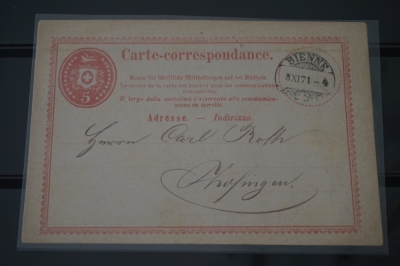 Carte-correspondance.
BIENNE
3 XI 71 - 4
5
Raum für schriftliche Mittheilungen auf der Rückseite.
Le revers de la carte est réservé pour les communications
Il tergo della cartolina è riservato alle communica-
zioni in scritto
Adresse. — Indirizzo.
Herrn Carl Roth
Zofingen.